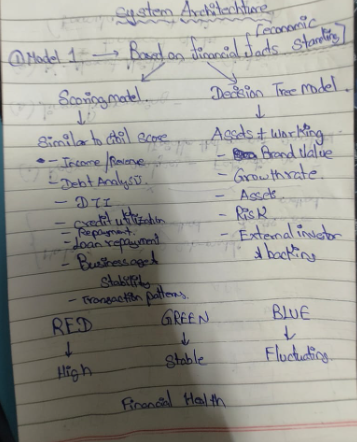 System Architechture
① Model 1 → Based on financial facts [economic standing]
Scoring model. Decision Tree Model.
Similar to Cibil score
- Income/Revenue
- Debt Analysis
- DTI
- credit utilization
- Repayment.
- Loan repayment
- Business age &
Stability
- Transaction patterns.
Assets + working
- Brand Value
- Growth rate.
- Assets
- Risk
- External investor
& backing
RED GREEN BLUE
High Stable Fluctuating
Financial Health